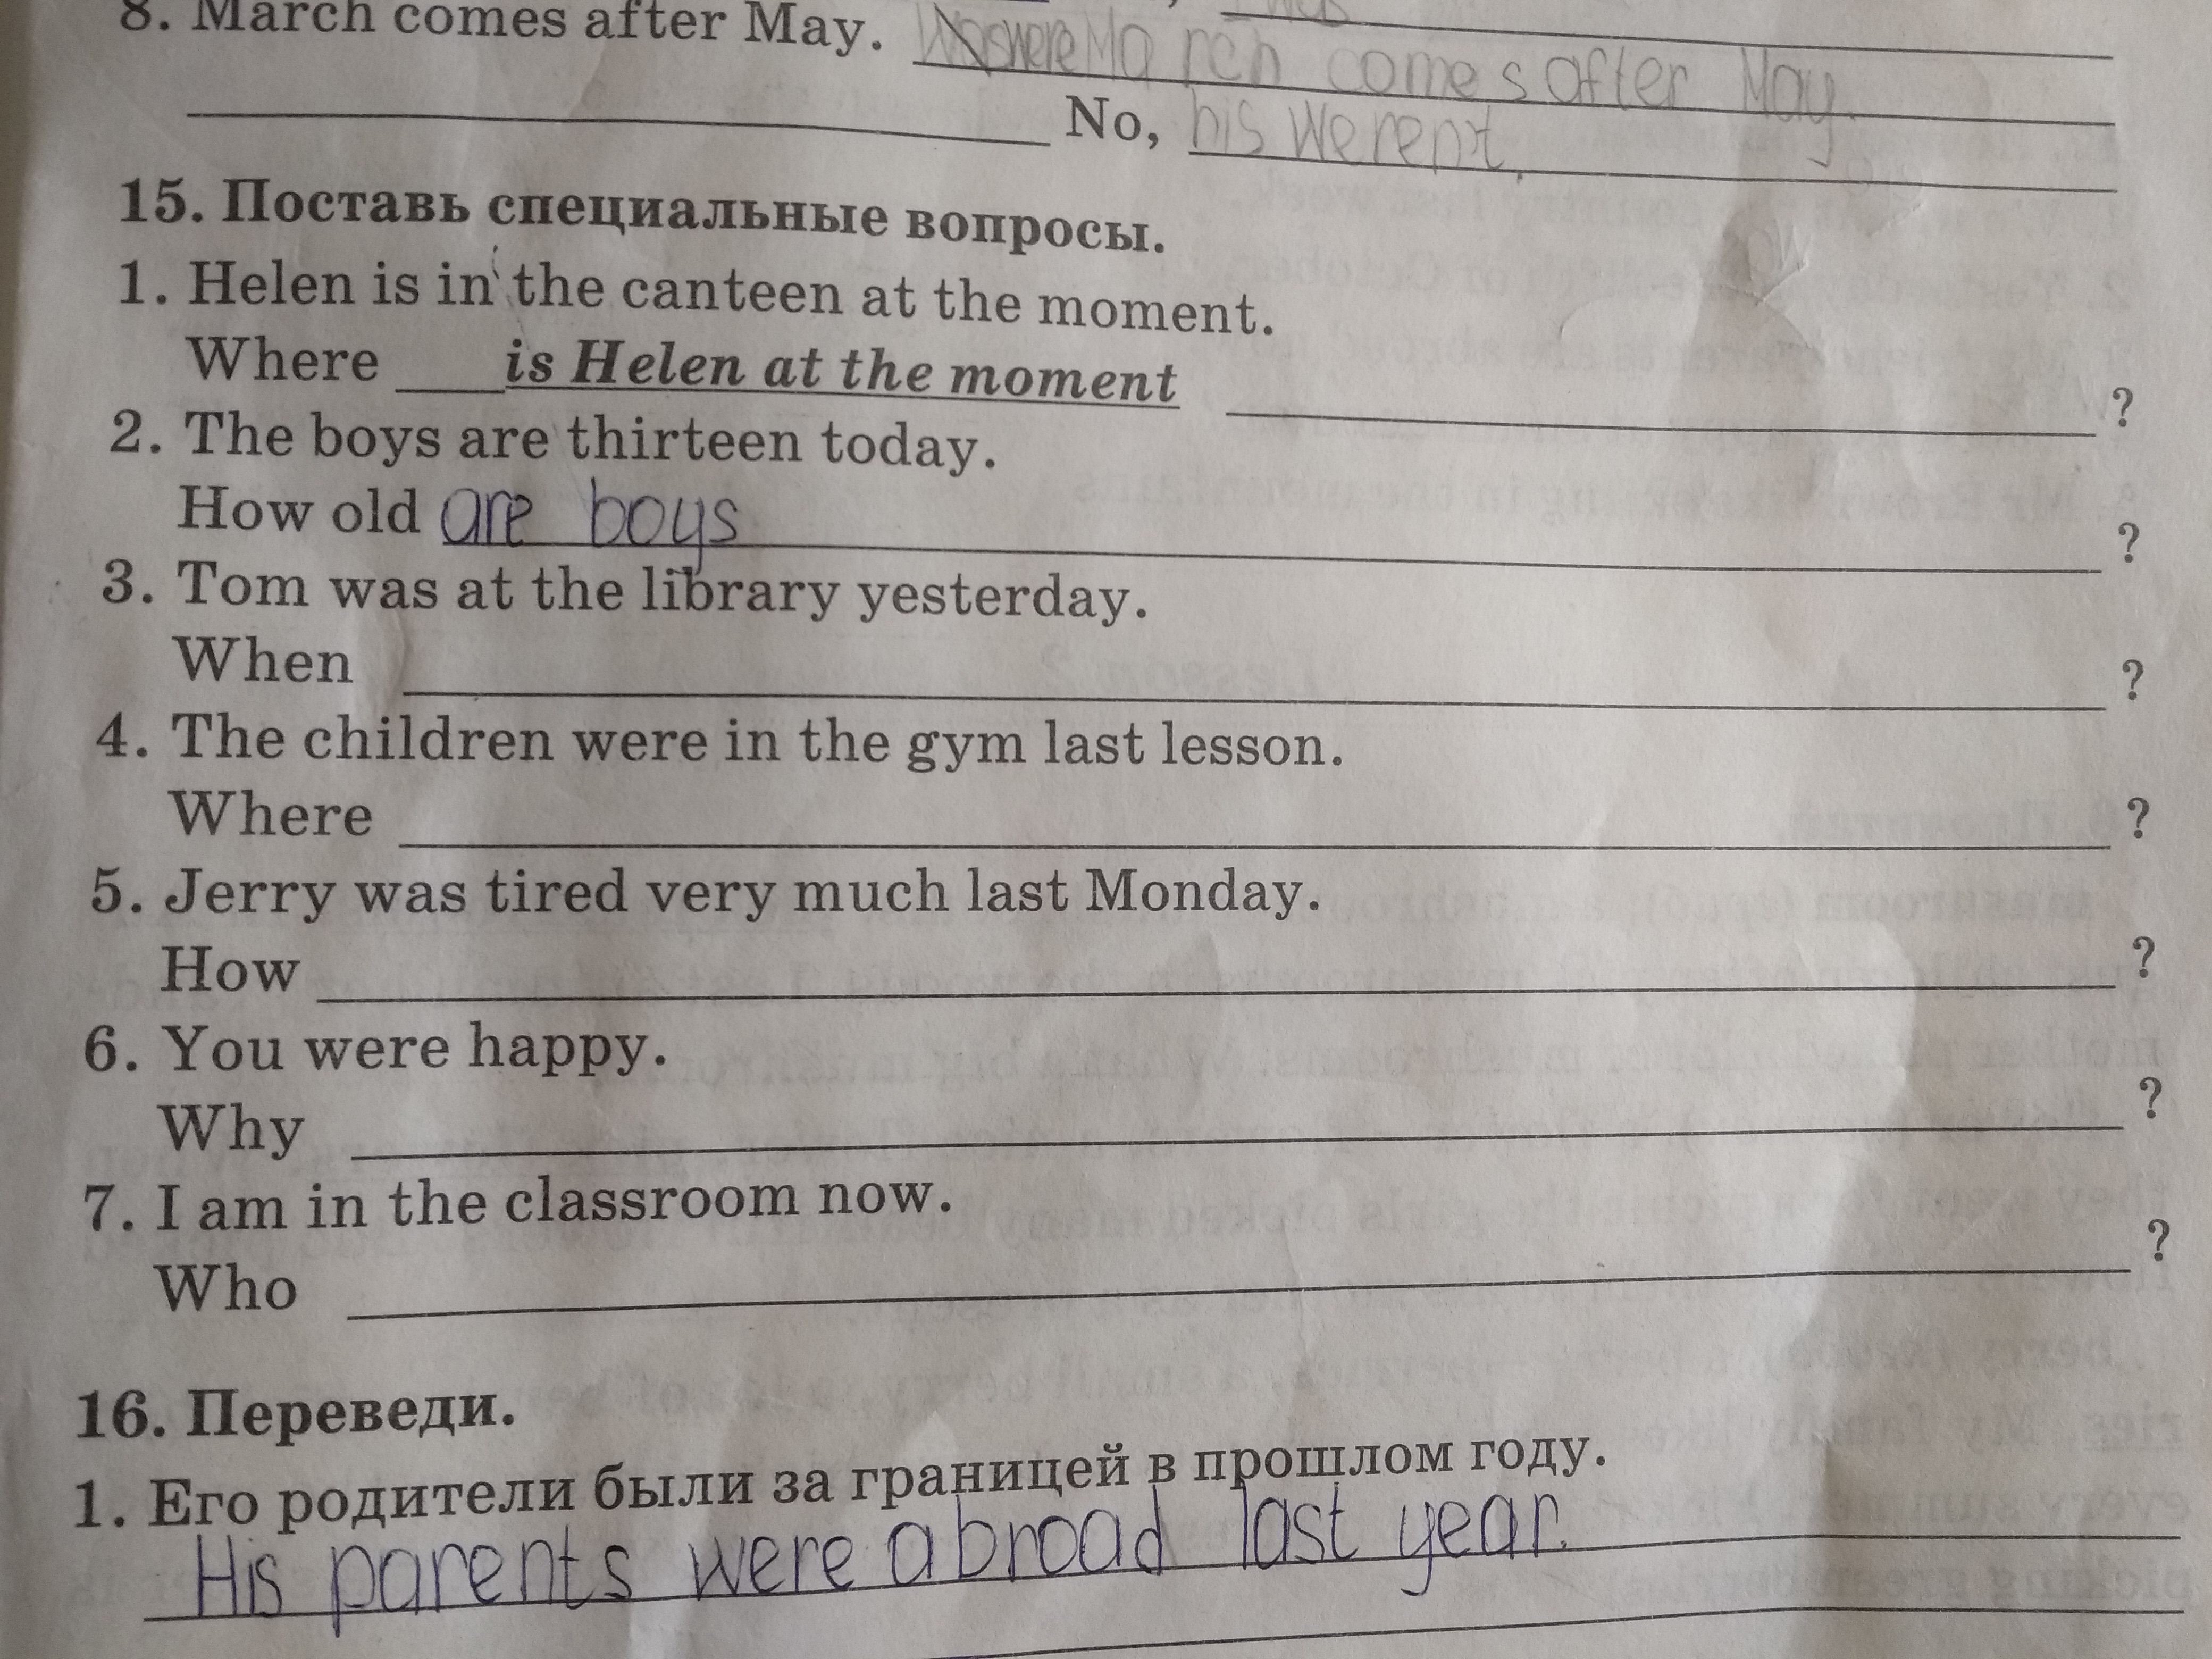 8. March comes after May. March comes after May.
No, his werent.
15. Поставь специальные вопросы.
1. Helen is in the canteen at the moment.
Where ___is Helen at the moment ___?
2. The boys are thirteen today.
How old are boys ?
3. Tom was at the library yesterday.
When ___?
4. The children were in the gym last lesson.
Where ___?
5. Jerry was tired very much last Monday.
How ___?
6. You were happy.
Why ___?
7. I am in the classroom now.
Who ___?
16. Переведи.
1. Его родители были за границей в прошлом году.
His parents were abroad last year.